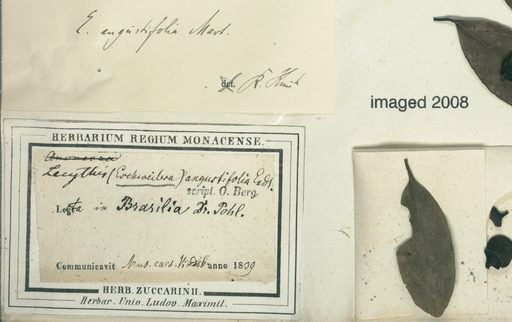 E. angustifolia Mart.
det. R. Knuth
imaged 2008
HERBARIUM REGIUM MONACENSE.
Lecythis (Eschweilera) angustifolia Endl.
script. O. Berg.
Lecta in Brasilia Dr. Pohl.
Communicavit Mus. caes. Vindob anno 1839
HERB. ZUCCARINII.
Herbar. Univ. Ludov. Maximil.